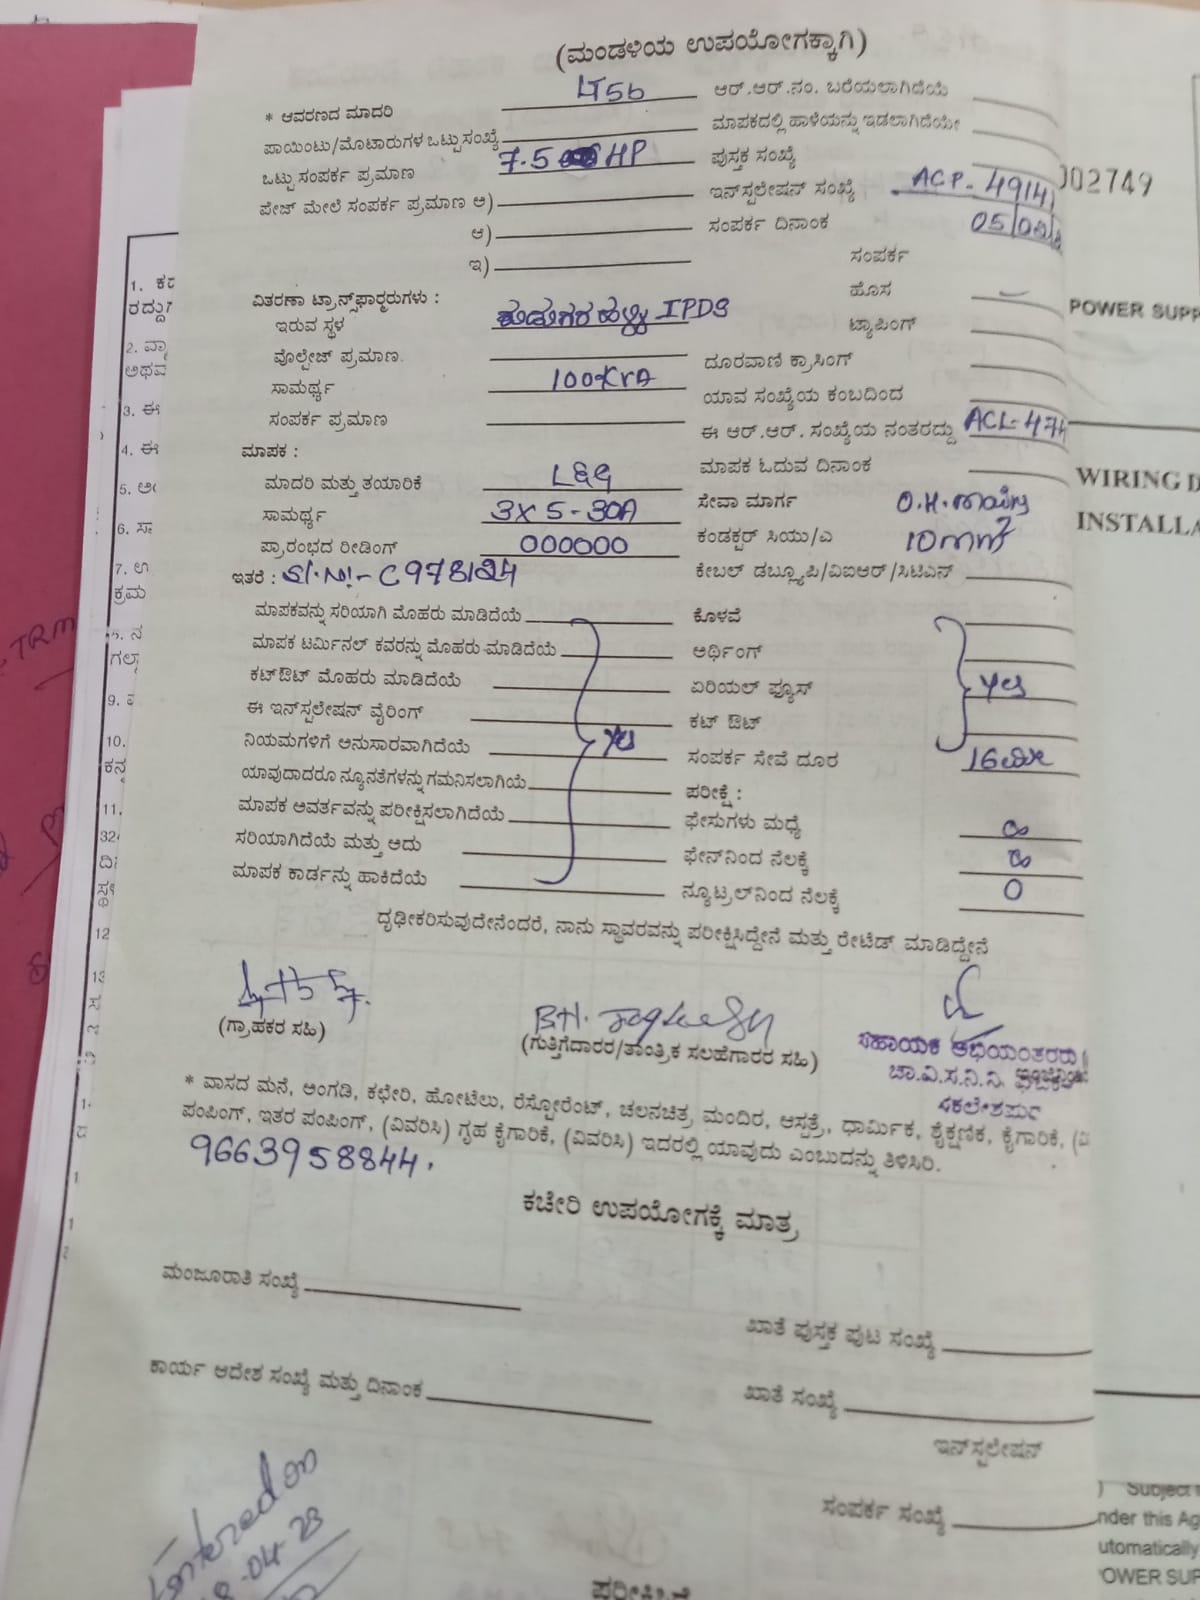 (ಮಂಡಳಿಯ ಉಪಯೋಗಕ್ಕಾಗಿ)
* ಆವರಣದ ಮಾದರಿ LT5b ಆರ್.ಆರ್.ನಂ. ಬರೆಯಲಾಗಿದೆಯೆ
ಪಾಯಿಂಟು/ಮೊಟಾರುಗಳ ಒಟ್ಟುಸಂಖ್ಯೆ ಮಾಪಕದಲ್ಲಿ ಹಾಳೆಯನ್ನು ಇಡಲಾಗಿದೆಯೇ
ಒಟ್ಟು ಸಂಪರ್ಕ ಪ್ರಮಾಣ 7.5 HP ಪುಸ್ತಕ ಸಂಖ್ಯೆ
ಪೇಜ್ ಮೇಲೆ ಸಂಪರ್ಕ ಪ್ರಮಾಣ ಅ) ಇನ್‌ಸ್ಪಲೇಷನ್ ಸಂಖ್ಯೆ ACP-4914 002749
ಆ) ಸಂಪರ್ಕ ದಿನಾಂಕ 05/
ಇ) ಸಂಪರ್ಕ
ವಿತರಣಾ ಟ್ರಾನ್ಸ್‌ಫಾರ್‍ಮರುಗಳು : ಹೊಸ
ಇರುವ ಸ್ಥಳ IPDS ಟ್ಯಾಪಿಂಗ್
ವೊಲ್ಟೇಜ್ ಪ್ರಮಾಣ. ದೂರವಾಣಿ ಕ್ರಾಸಿಂಗ್
ಸಾಮರ್ಥ್ಯ 100KVA ಯಾವ ಸಂಖ್ಯೆಯ ಕಂಬದಿಂದ
ಸಂಪರ್ಕ ಪ್ರಮಾಣ ಈ ಆರ್.ಆರ್. ಸಂಖ್ಯೆಯ ನಂತರದ್ದು ACL-474
ಮಾಪಕ : ಮಾಪಕ ಓದುವ ದಿನಾಂಕ
ಮಾದರಿ ಮತ್ತು ತಯಾರಿಕೆ L&G ಸೇವಾ ಮಾರ್ಗ O.H.
ಸಾಮರ್ಥ್ಯ 3X5-30A ಕಂಡಕ್ಟರ್ ಸಿಯು/ಎ
ಪ್ರಾರಂಭದ ರೀಡಿಂಗ್ 000000 ಕೇಬಲ್ ಡಬ್ಲ್ಯೂಪಿ/ವಿಐಆರ್/ಸಿಟಿಎಸ್
ಇತರೆ : Sl.No:- C978124
ಮಾಪಕವನ್ನು ಸರಿಯಾಗಿ ಮೊಹರು ಮಾಡಿದೆಯೆ ಕೊಳವೆ
ಮಾಪಕ ಟರ್ಮಿನಲ್ ಕವರನ್ನು ಮೊಹರು ಮಾಡಿದೆಯೆ ಅರ್ಥಿಂಗ್
ಕಟ್‌ಔಟ್ ಮೊಹರು ಮಾಡಿದೆಯೆ ಏರಿಯಲ್ ಫ್ಯೂಸ್ Yes
ಈ ಇನ್‌ಸ್ಪಲೇಷನ್ ವೈರಿಂಗ್ ಕಟ್ ಔಟ್
ನಿಯಮಗಳಿಗೆ ಅನುಸಾರವಾಗಿದೆಯೆ Yes ಸಂಪರ್ಕ ಸೇವೆ ದೂರ 16ಮೀ
ಯಾವುದಾದರೂ ನ್ಯೂನತೆಗಳನ್ನು ಗಮನಿಸಲಾಗಿಯೆ ಪರೀಕ್ಷೆ :
ಮಾಪಕ ಆವರ್ತವನ್ನು ಪರೀಕ್ಷಿಸಲಾಗಿದೆಯೆ ಫೇಸುಗಳು ಮಧ್ಯೆ ∞
ಸರಿಯಾಗಿದೆಯೆ ಮತ್ತು ಅದು ಫೇಸ್‌ನಿಂದ ನೆಲಕ್ಕೆ ∞
ಮಾಪಕ ಕಾರ್ಡನ್ನು ಹಾಕಿದೆಯೆ ನ್ಯೂಟ್ರಲ್‌ನಿಂದ ನೆಲಕ್ಕೆ 0
ದೃಢೀಕರಿಸುವುದೇನೆಂದರೆ, ನಾನು ಸ್ಥಾವರವನ್ನು ಪರೀಕ್ಷಿಸಿದ್ದೇನೆ ಮತ್ತು ರೇಟೆಡ್ ಮಾಡಿದ್ದೇನೆ
(ಗ್ರಾಹಕರ ಸಹಿ)
(ಗುತ್ತಿಗೆದಾರರ/ತಾಂತ್ರಿಕ ಸಲಹೆಗಾರರ ಸಹಿ)
ಸಹಾಯಕ ಅಭಿಯಂತರರು
ಚಾ.ವಿ.ಸ.ನಿ.ನಿ.
ಸಕಲೇಶಪುರ
* ವಾಸದ ಮನೆ, ಅಂಗಡಿ, ಕಛೇರಿ, ಹೋಟೆಲು, ರೆಸ್ಟೋರೆಂಟ್, ಚಲನಚಿತ್ರ ಮಂದಿರ, ಆಸ್ಪತ್ರೆ, ಧಾರ್ಮಿಕ, ಶೈಕ್ಷಣಿಕ, ಕೈಗಾರಿಕೆ,
ಪಂಪಿಂಗ್, ಇತರ ಪಂಪಿಂಗ್, (ವಿವರಿಸಿ) ಗೃಹ ಕೈಗಾರಿಕೆ, (ವಿವರಿಸಿ) ಇದರಲ್ಲಿ ಯಾವುದು ಎಂಬುದನ್ನು ತಿಳಿಸಿರಿ.
9663958844.
ಕಚೇರಿ ಉಪಯೋಗಕ್ಕೆ ಮಾತ್ರ
ಮಂಜೂರಾತಿ ಸಂಖ್ಯೆ
ಖಾತೆ ಪುಸ್ತಕ ಪುಟ ಸಂಖ್ಯೆ
ಕಾರ್ಯ ಆದೇಶ ಸಂಖ್ಯೆ ಮತ್ತು ದಿನಾಂಕ
ಖಾತೆ ಸಂಖ್ಯೆ
ಇನ್‌ಸ್ಪಲೇಷನ್
ಸಂಪರ್ಕ ಸಂಖ್ಯೆ
Entered on
-04-23
POWER SUPP
WIRING D
INSTALLA
) Subject
nder this Ag
utomatically
POWER SUP